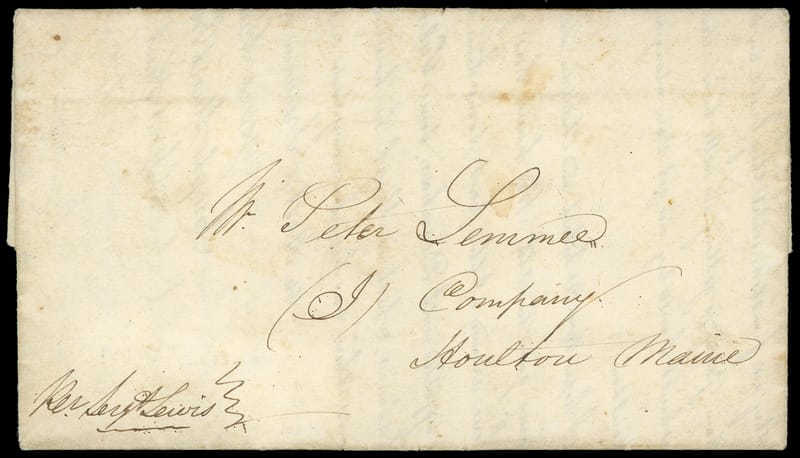 Mr. Peter Lemmee
(I) Company
Houlton Maine
Per Sergt Lewis